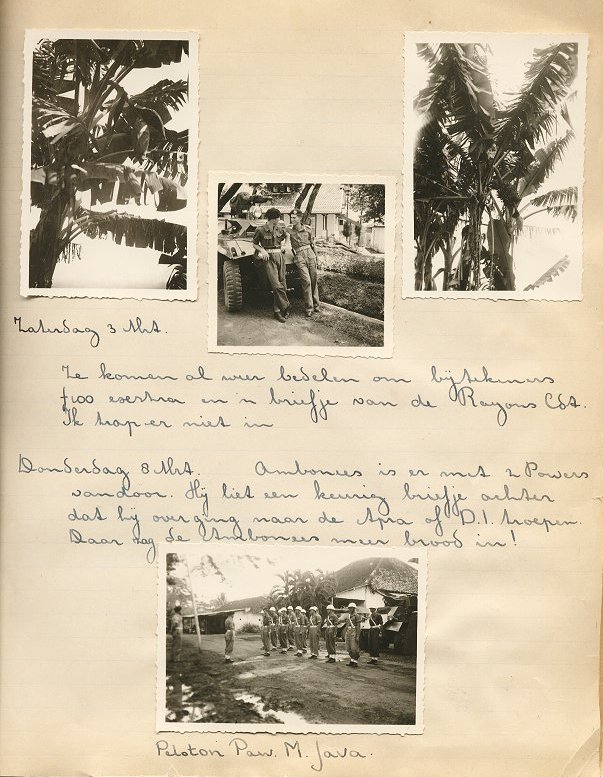 Zaterdag 3 Mrt.
Ze komen al weer bedelen om bijtekeners
f 100 esertra en 'n briefje van de Rayons Cdt.
Ik trap er niet in
Donderdag 8 Mrt. Ambonees is er met 2 Powers
vandoor. Hij liet een keurig briefje achter
dat hij overging naar de Apra of D.I. troepen.
Daar zag de Ambonees meer brood in!
Peloton Paw. M. Java.